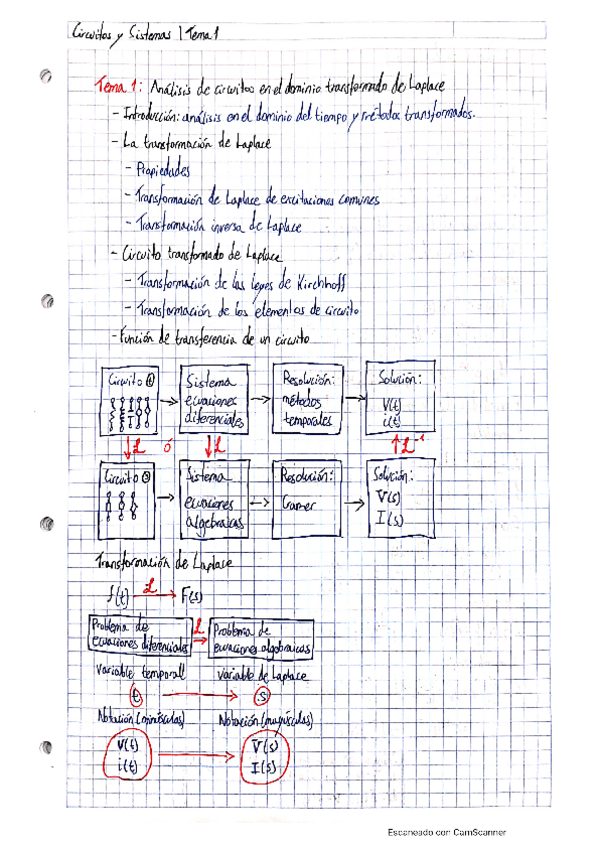 Circuitos y Sistemas | Tema 1
Tema 1: Análisis de circuitos en el dominio transformado de Laplace
- Introducción: análisis en el dominio del tiempo y métodos transformados.
- La transformación de Laplace
- Propiedades
- Transformación de Laplace de excitaciones comunes
- Transformación inversa de Laplace
- Circuito transformado de Laplace
- Transformación de las leyes de Kirchhoff
- Transformación de los elementos de circuito
- Función de transferencia de un circuito
Circuito t
Sistema
ecuaciones
diferenciales
Resolución:
métodos
temporales
Solución:
V(t)
i(t)
L ó L L⁻¹
Circuito s
Sistema
ecuaciones
algebraicas
Resolución:
Cramer
Solución:
V(s)
I(s)
Transformación de Laplace
f(t) L F(s)
Problema de
ecuaciones diferenciales
L
Problema de
ecuaciones algebraicas
Variable temporal Variable de Laplace
t s
Notación (minúsculas) Notación (mayúsculas)
V(t) V(s)
i(t) I(s)
Escaneado con CamScanner